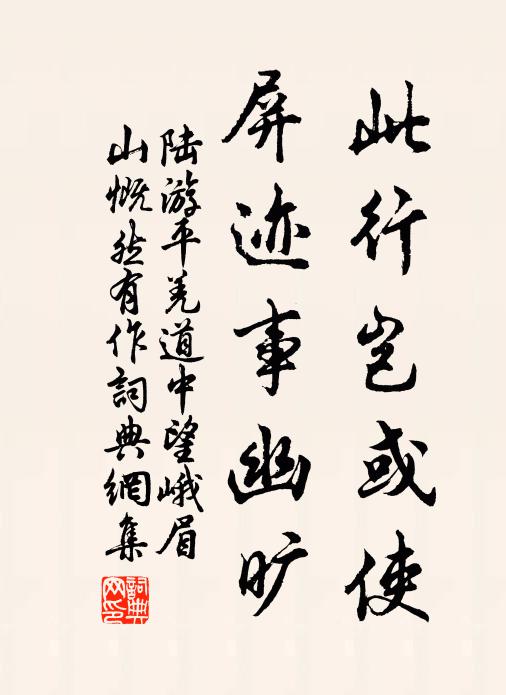 此行岂或使
屏迹事幽旷
陆游平羌道中望峨眉
山慨然有作詞典網集
詞典网印